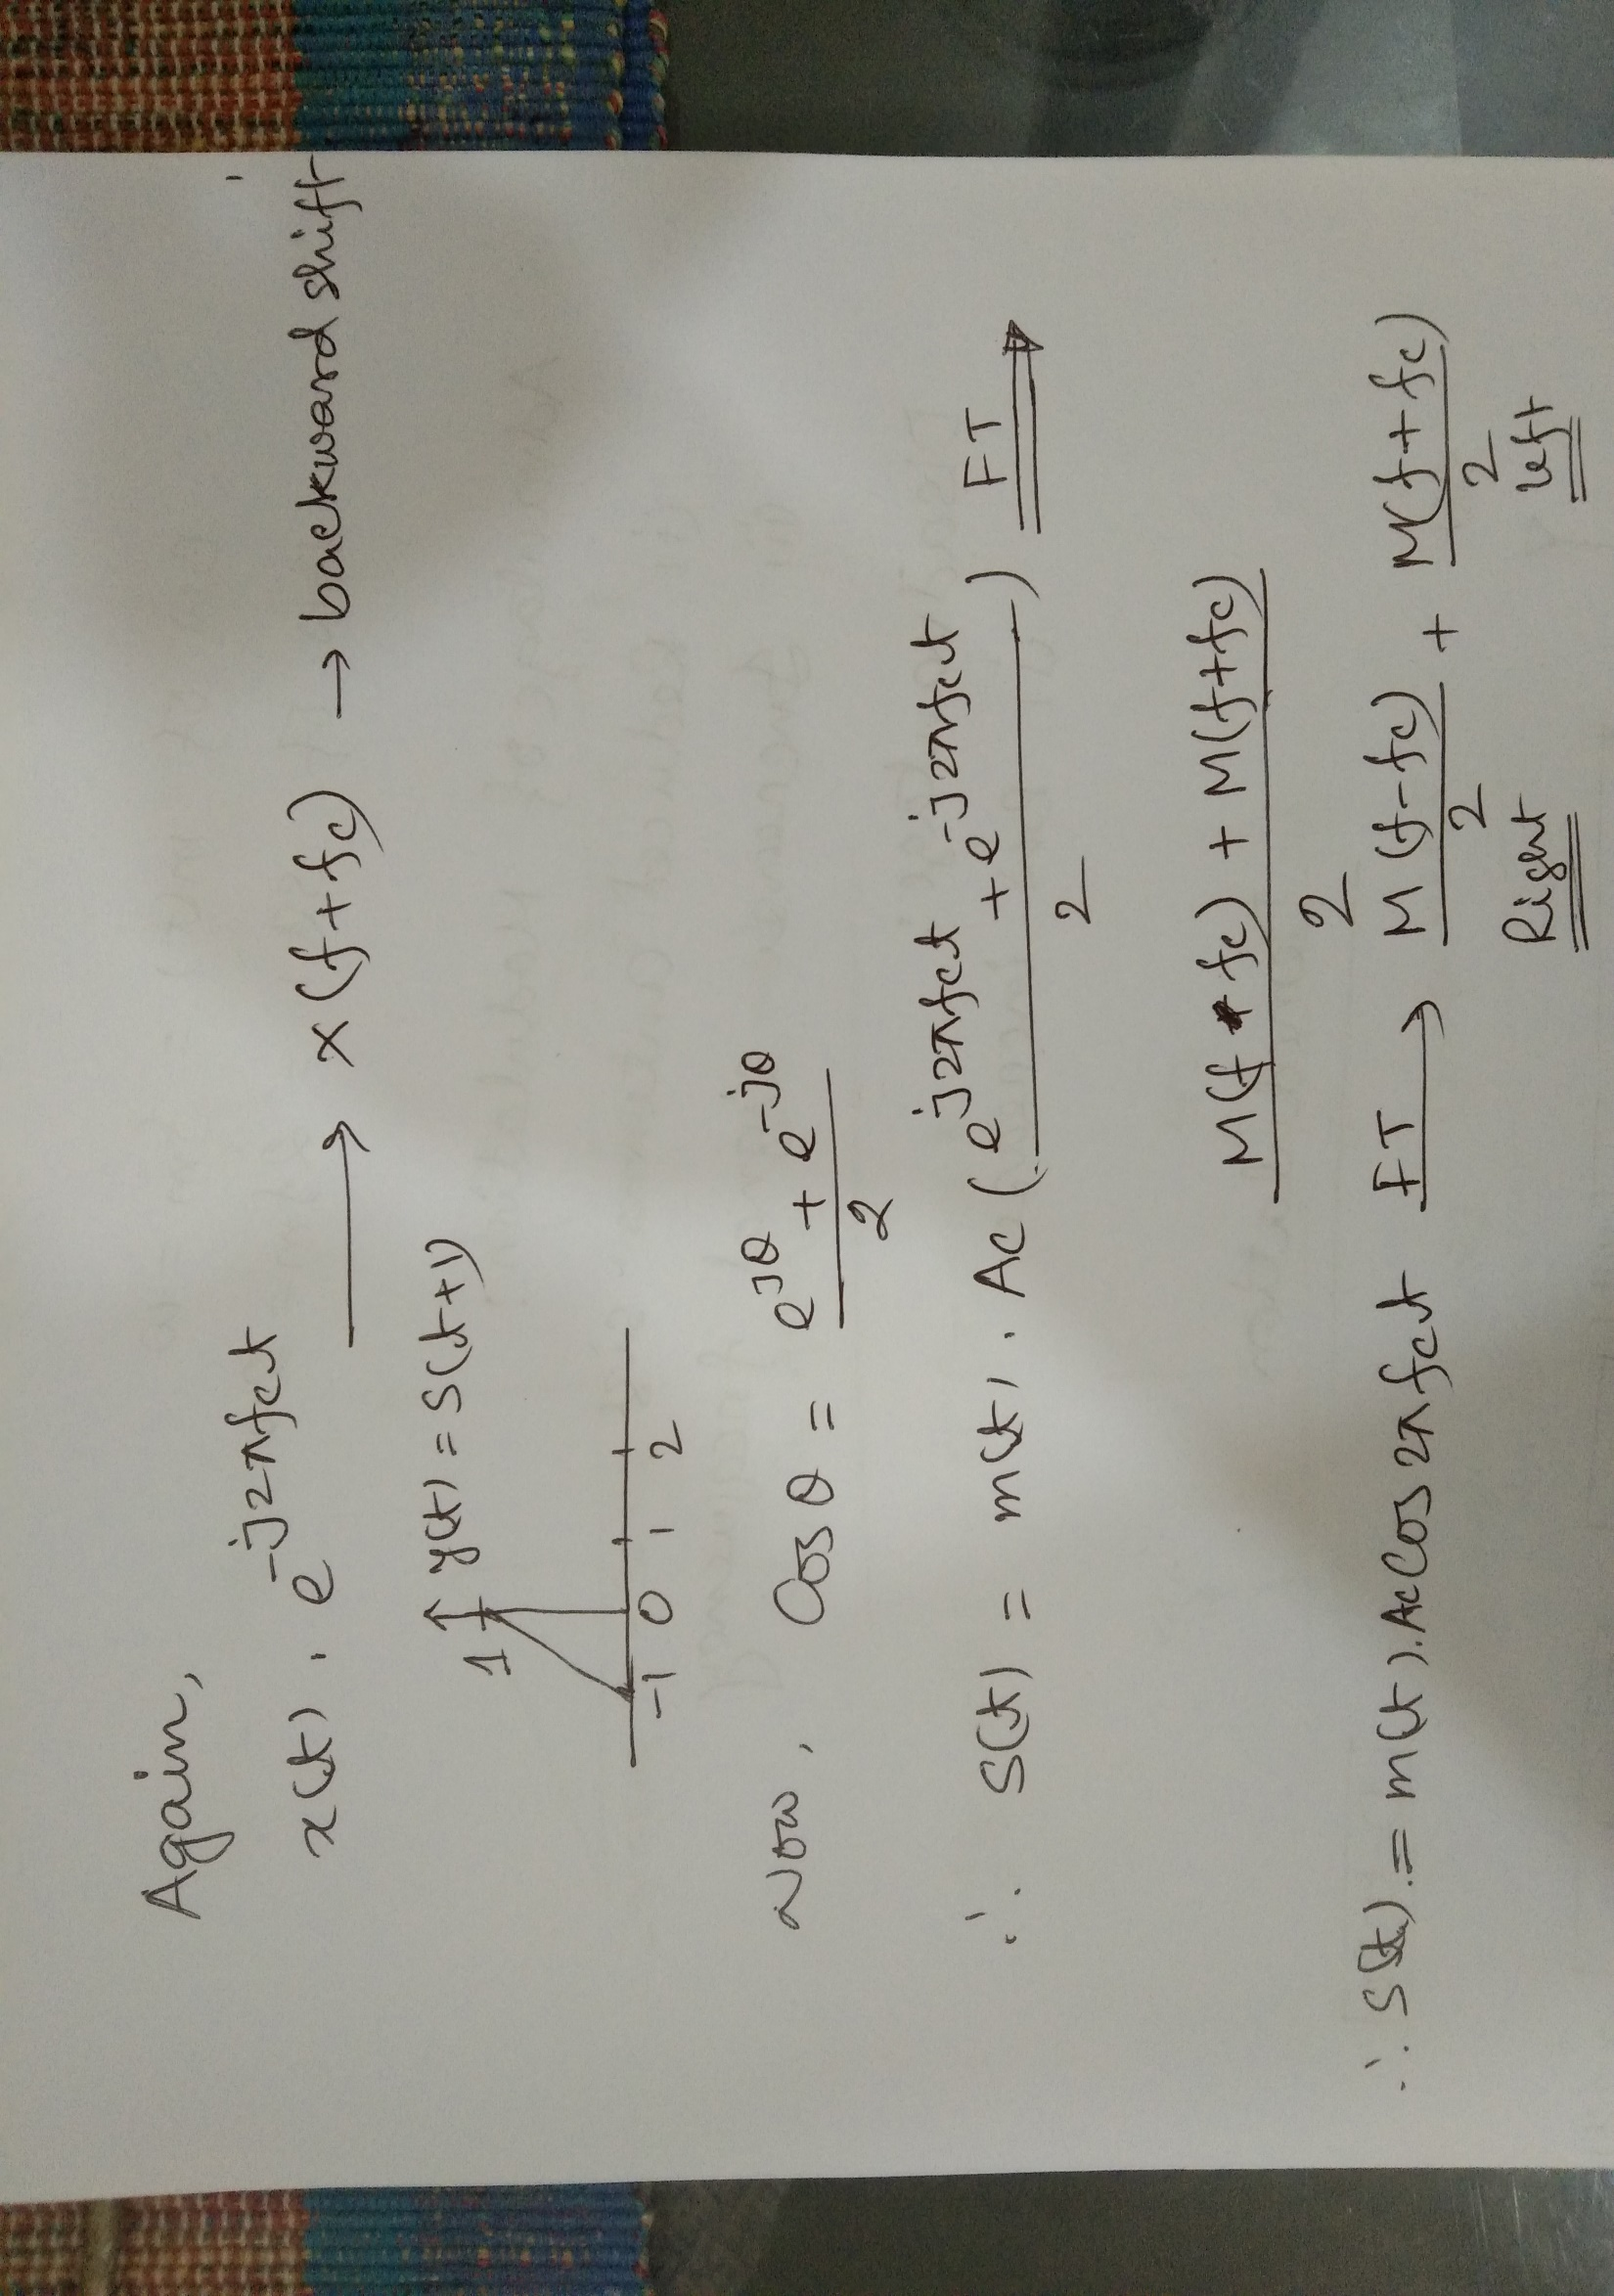 Again,
x(t) . e^-j2πfct → x(f+fc) → backward shift
y(t) = s(t+1)
1
-1 0 1 2
Now, Cos θ = (e^jθ + e^-jθ)/2
∴ S(t) = m(t) . Ac (e^j2πfct + e^-j2πfct)/2 ) FT
M(f - fc) + M(f+fc)
2
∴ S(t) = m(t).Ac Cos 2πfct FT → M(f-fc)/2 + M(f+fc)/2
Right left